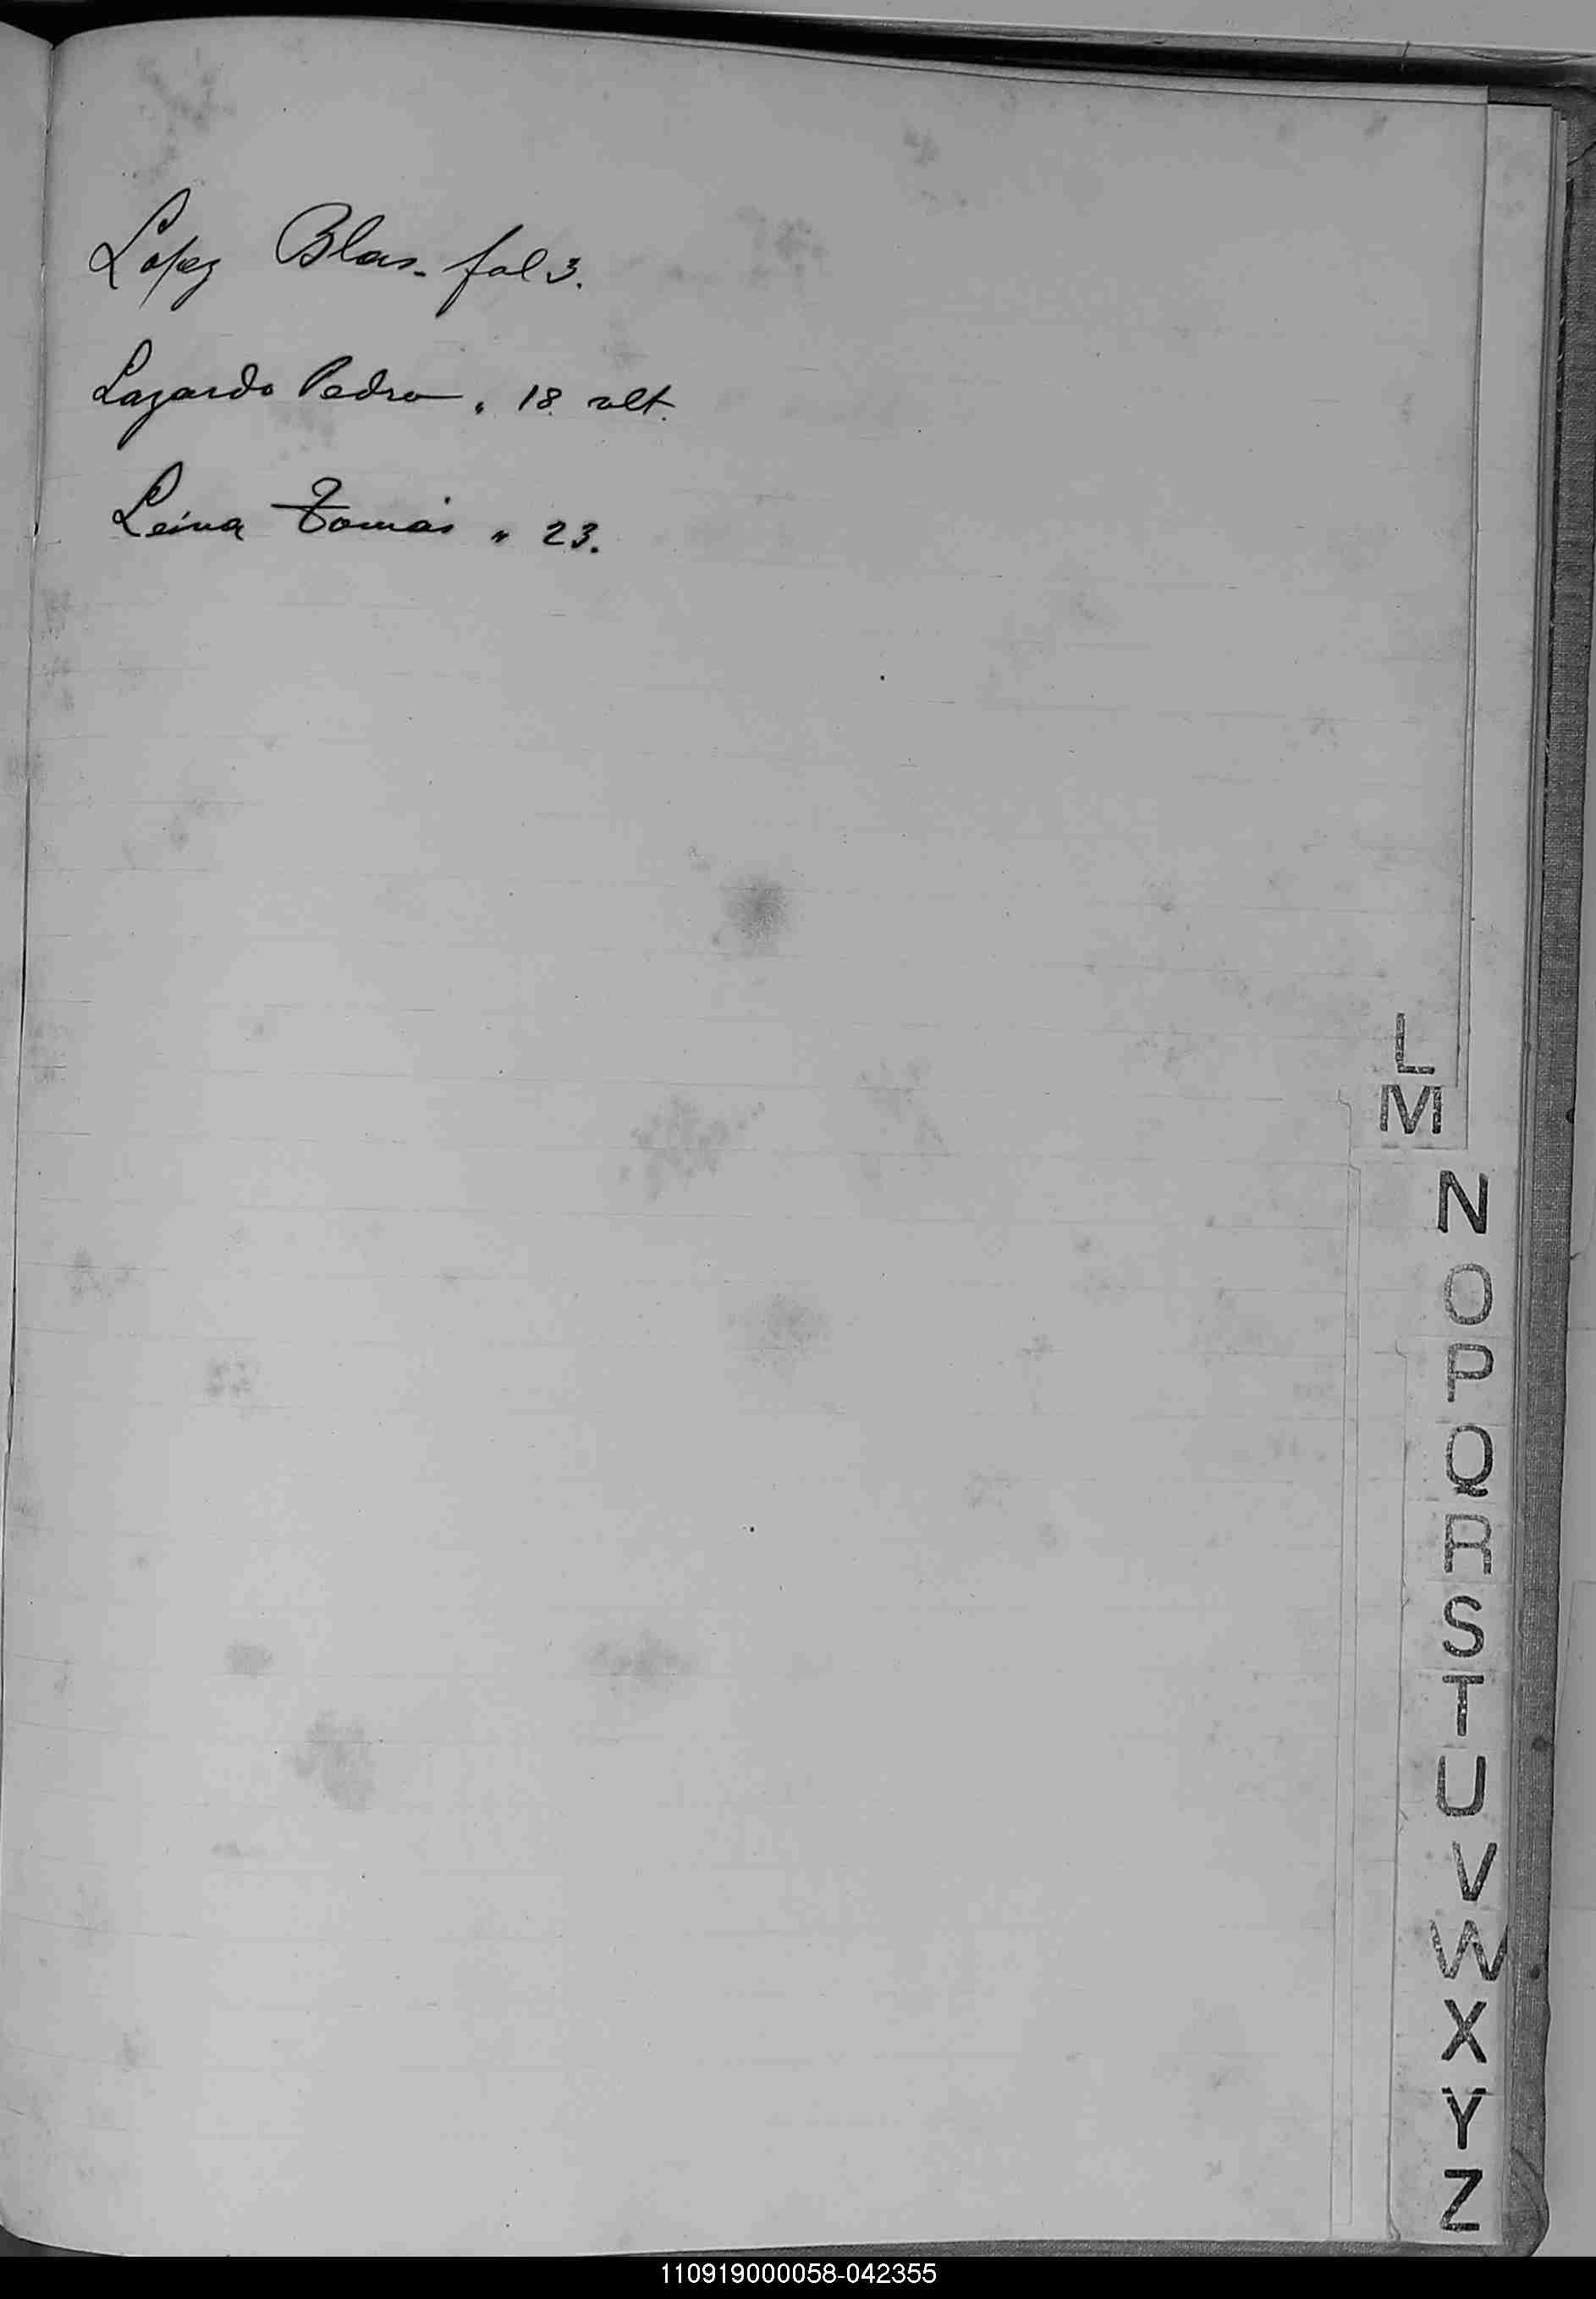 Lopez Blas. fol 3.
Lazardo Pedro " 18 vlt.
Leina Tomás " 23.
L
M
N
O
P
Q
R
S
T
U
V
W
X
Y
Z
110919000058-042355